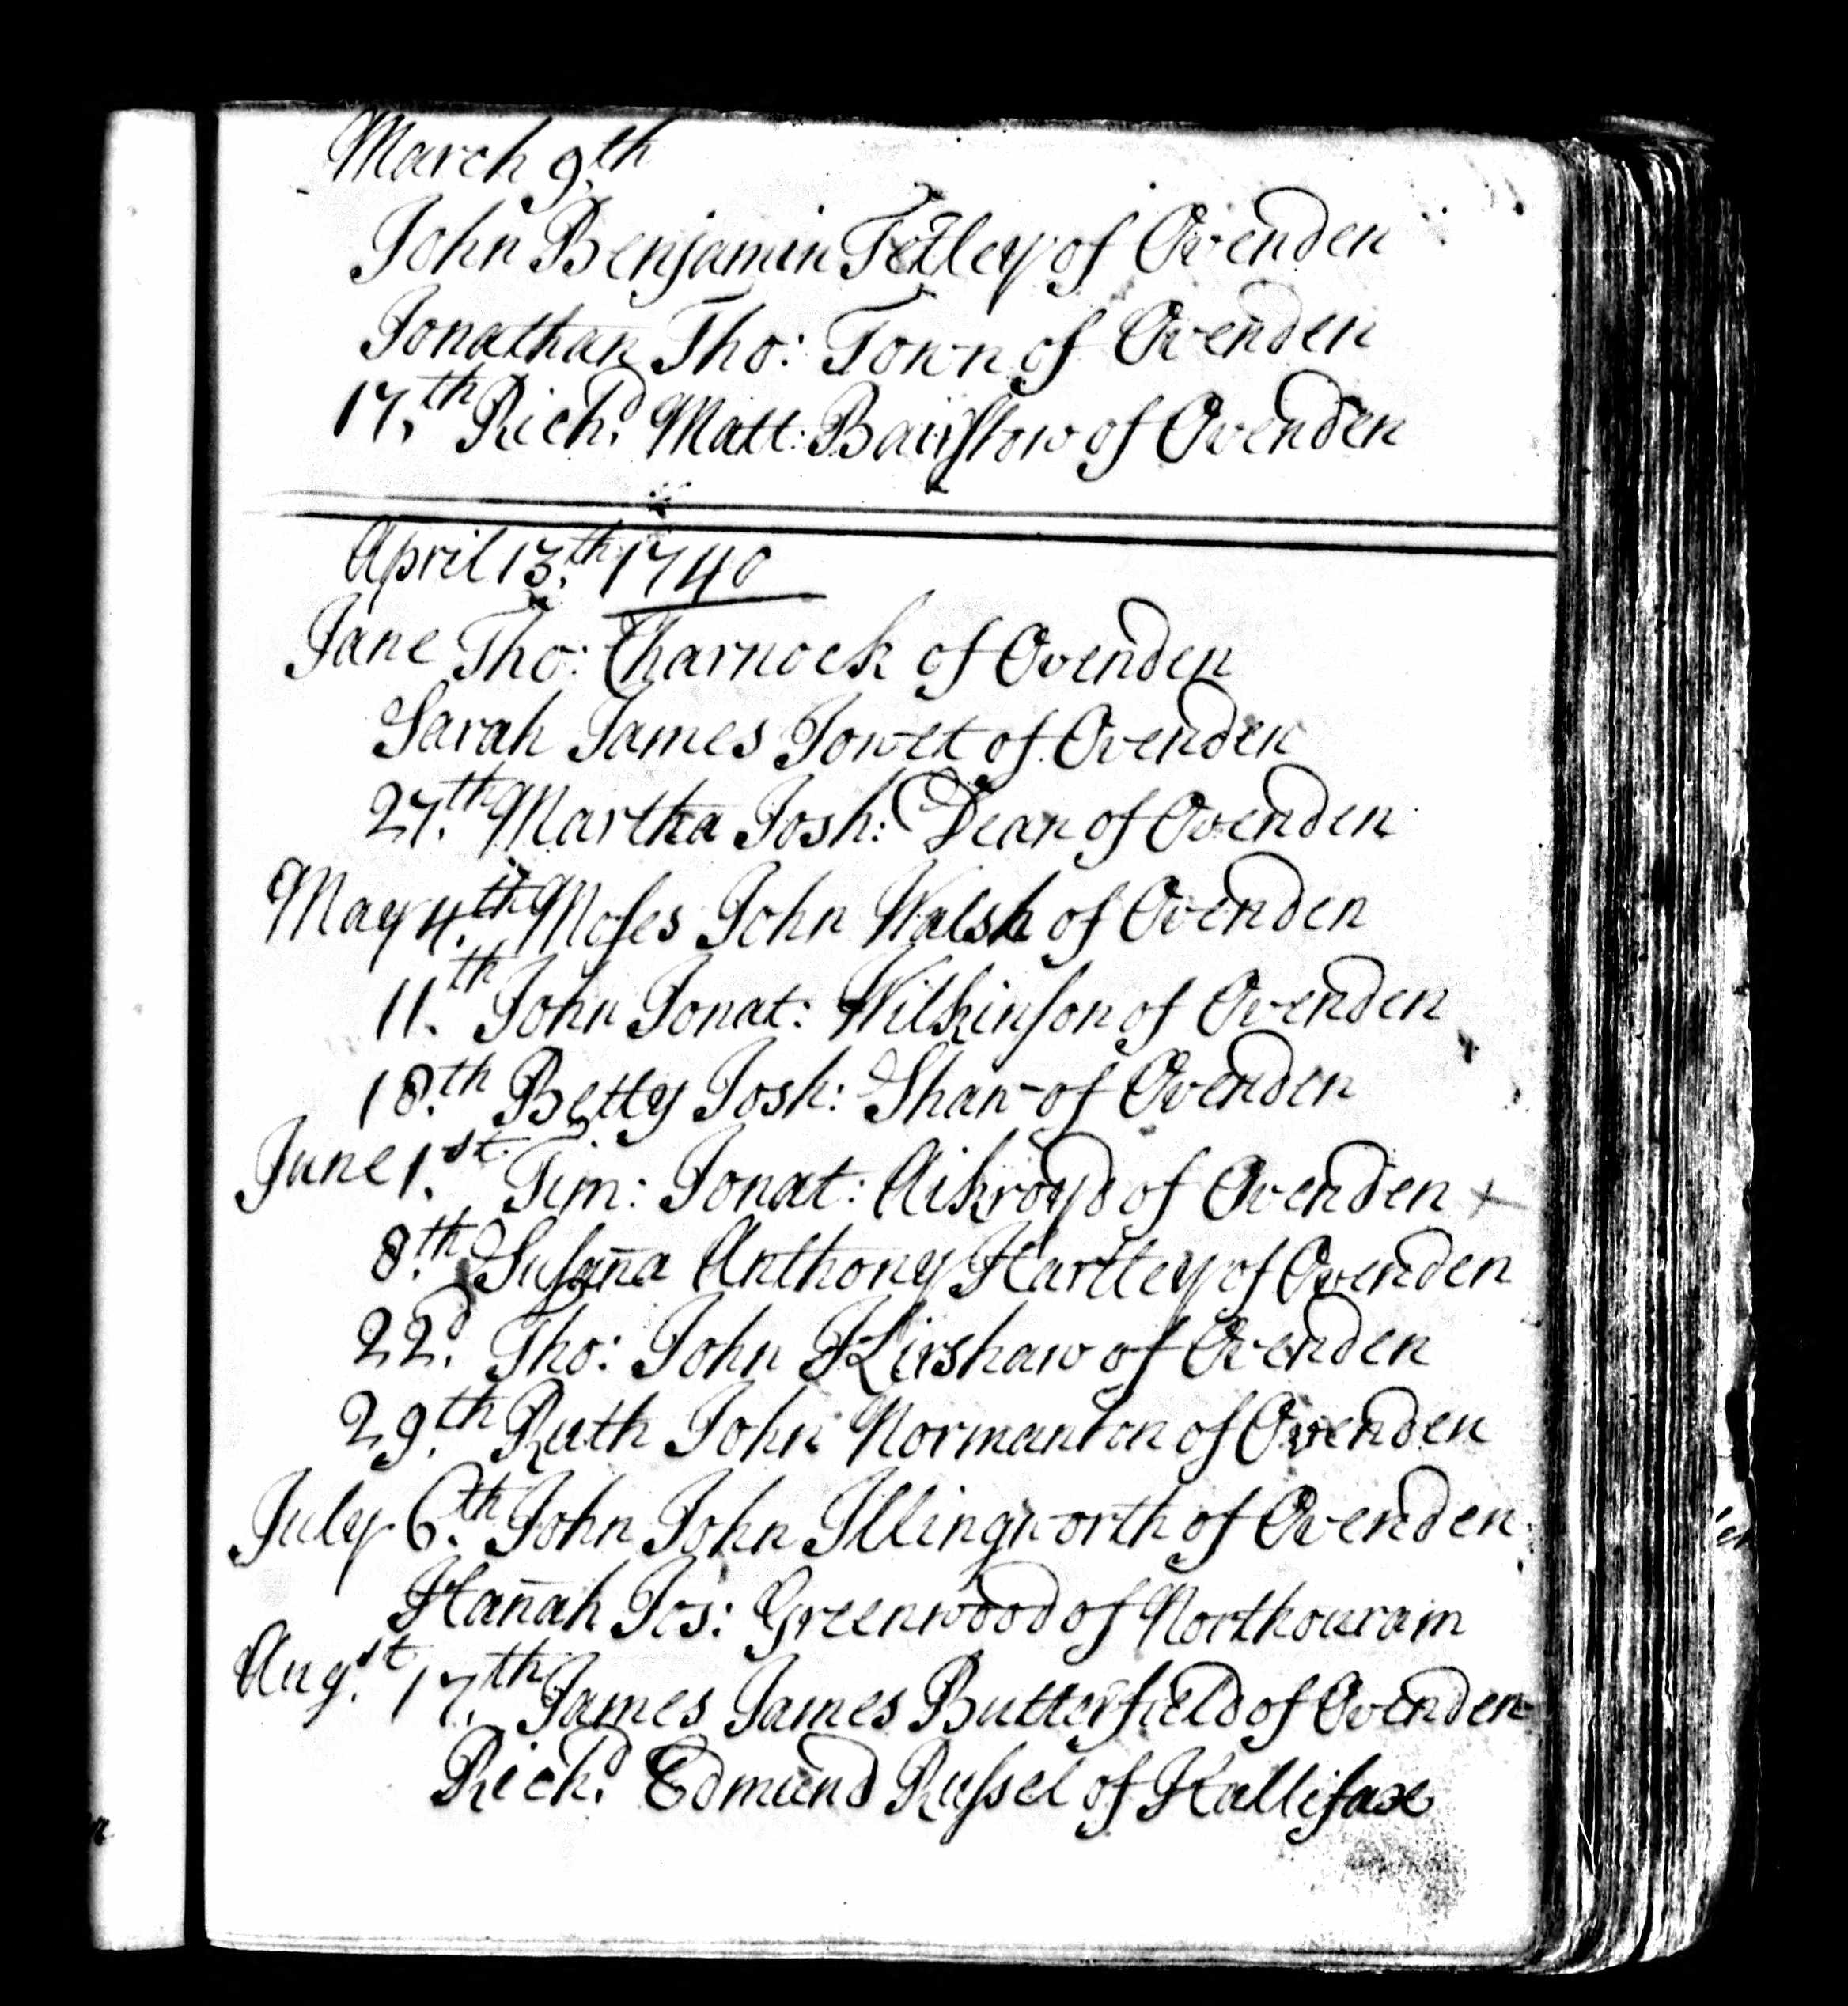 March 9th
John Benjamin Tetley of Ovenden
Jonathan Tho: Town of Ovenden
17.th Rich.d Matt: Bairstow of Ovenden
April 13.th 1740
Jane Tho: Charnock of Ovenden
Sarah James Jowet of Ovenden
27.th Martha Josh: Dean of Ovenden
May 4.th Moses John Walsh of Ovenden
11.th John Jonat: Wilkinson of Ovenden
18.th Betty Josh: Shaw of Ovenden
June 1.st Tim: Jonat: Aikroyd of Ovenden +
8.th Susan̄a Anthony Hartley of Ovenden
22.d Tho: John Kirshaw of Ovenden
29.th Ruth John Normanton of Ovenden
July 6.th John John Illingworth of Ovenden
Han̄ah Jos: Greenwood of Northouram
Aug.st 17.th James James Butterfield of Ovenden
Rich.d Edmund Russel of Hallifax